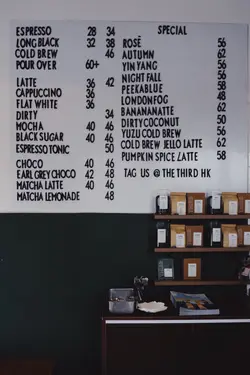 ESPRESSO 28 34
LONG BLACK 32 38
COLD BREW 46
POUR OVER 60+
LATTE 36 42
CAPPUCCINO 36
FLAT WHITE 36
DIRTY 34
MOCHA 40 46
BLACK SUGAR 40 46
ESPRESSO TONIC 50
CHOCO 40 46
EARL GREY CHOCO 42 48
MATCHA LATTE 40 46
MATCHA LEMONADE 48
SPECIAL
ROSÉ 56
AUTUMN 62
YIN YANG 56
NIGHT FALL 56
PEEKABLUE 58
LONDONFOG 48
BANANANATTE 62
DIRTY COCONUT 50
YUZU COLD BREW 56
COLD BREW JELLO LATTE 62
PUMPKIN SPICE LATTE 58
TAG US @ THE THIRD HK